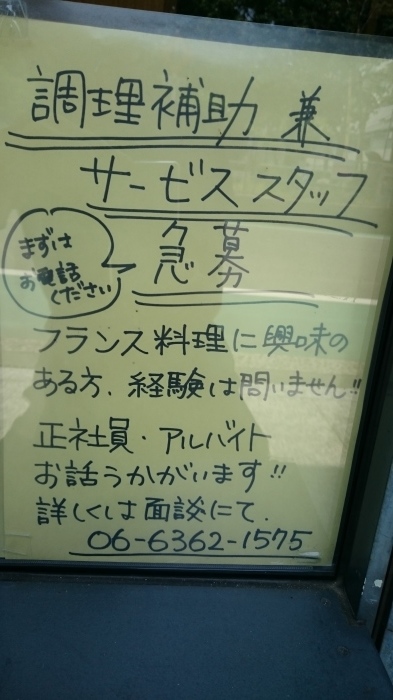 調理補助 兼
サービススタッフ
急募
まずは
お電話
ください
フランス料理に興味の
ある方、経験は問いません!!
正社員・アルバイト
お話うかがいます!!
詳しくは面談にて.
06-6362-1575